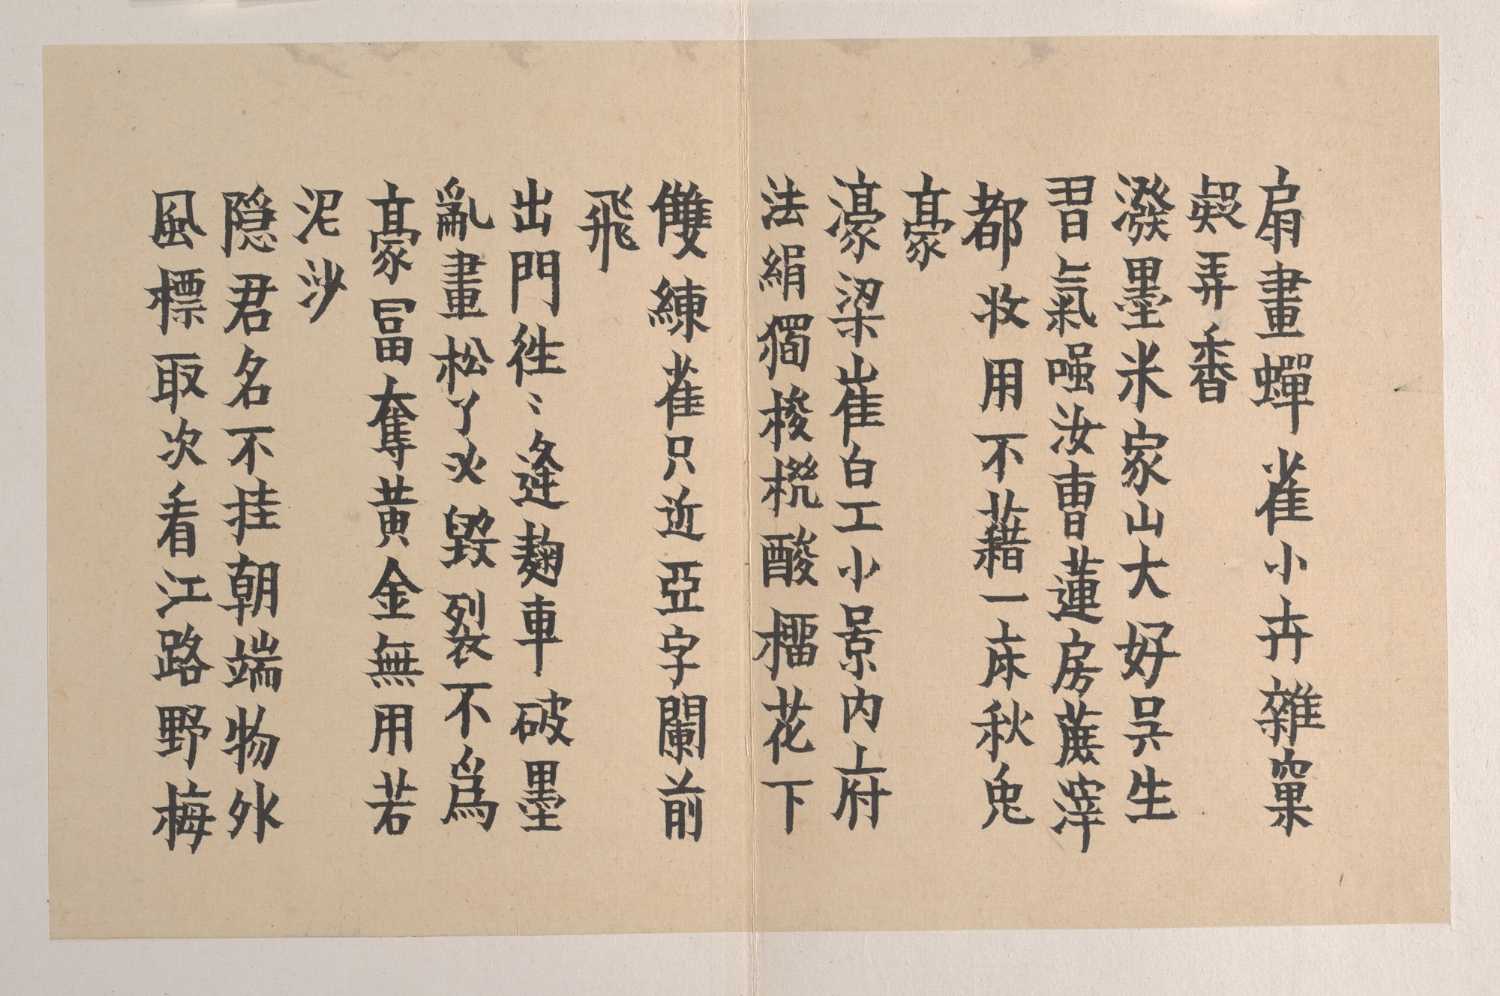 扇畫蟬雀小卉雜窠
弄香
潑墨米家山大好吳生
習氣嗤汝曹蓮房蔗滓
都妝用不藉一床秋兔
豪
濠梁崔白工小景內府
法絹獨梭機酸橊花下
雙練雀只近亞字闌前
飛
出門往〻逢麴車破墨
亂畫松丫火毀裂不為
豪冨奪黃金無用若
泥沙
隐君名不挂朝端物外
風標取次看江路野梅